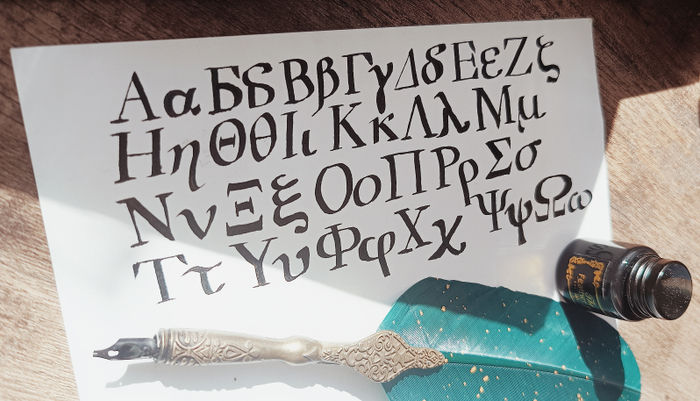 Αα Бб Ββ Γγ Δδ Εε Ζζ
Ηη Θθ Ιι Κκ Λλ Μμ
Νν Ξξ Οο Ππ Ρρ Σσ
Ττ Υυ Φφ Χχ Ψψ Ωω